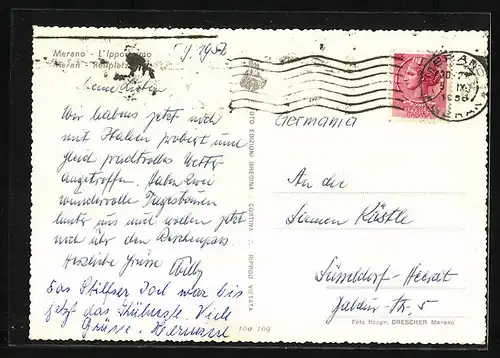 Merano - L'Ippodromo
Meran - Rennplatz
Meine Lieben
Wir haben jetzt noch
mit Italien probiert und
gleich prachtvolles Wetter
angetroffen. Haben zwei
wundervolle Tagestouren
hinter uns und wollen jetzt
noch über den Reschenpass.
Herzliche Grüsse Willy
Das Stilfser Joch war bis
jetzt das Schönste. Viele
Grüsse. Hermine
FOTO EDIZIONI GHEDINA CORTINA - RIPROD. VIETATA
Germania
An die
Firmen Kästle
Düsseldorf-Heerdt
Str. 5
Foto Rappr. DRESCHER Merano
MERANO
MERAN